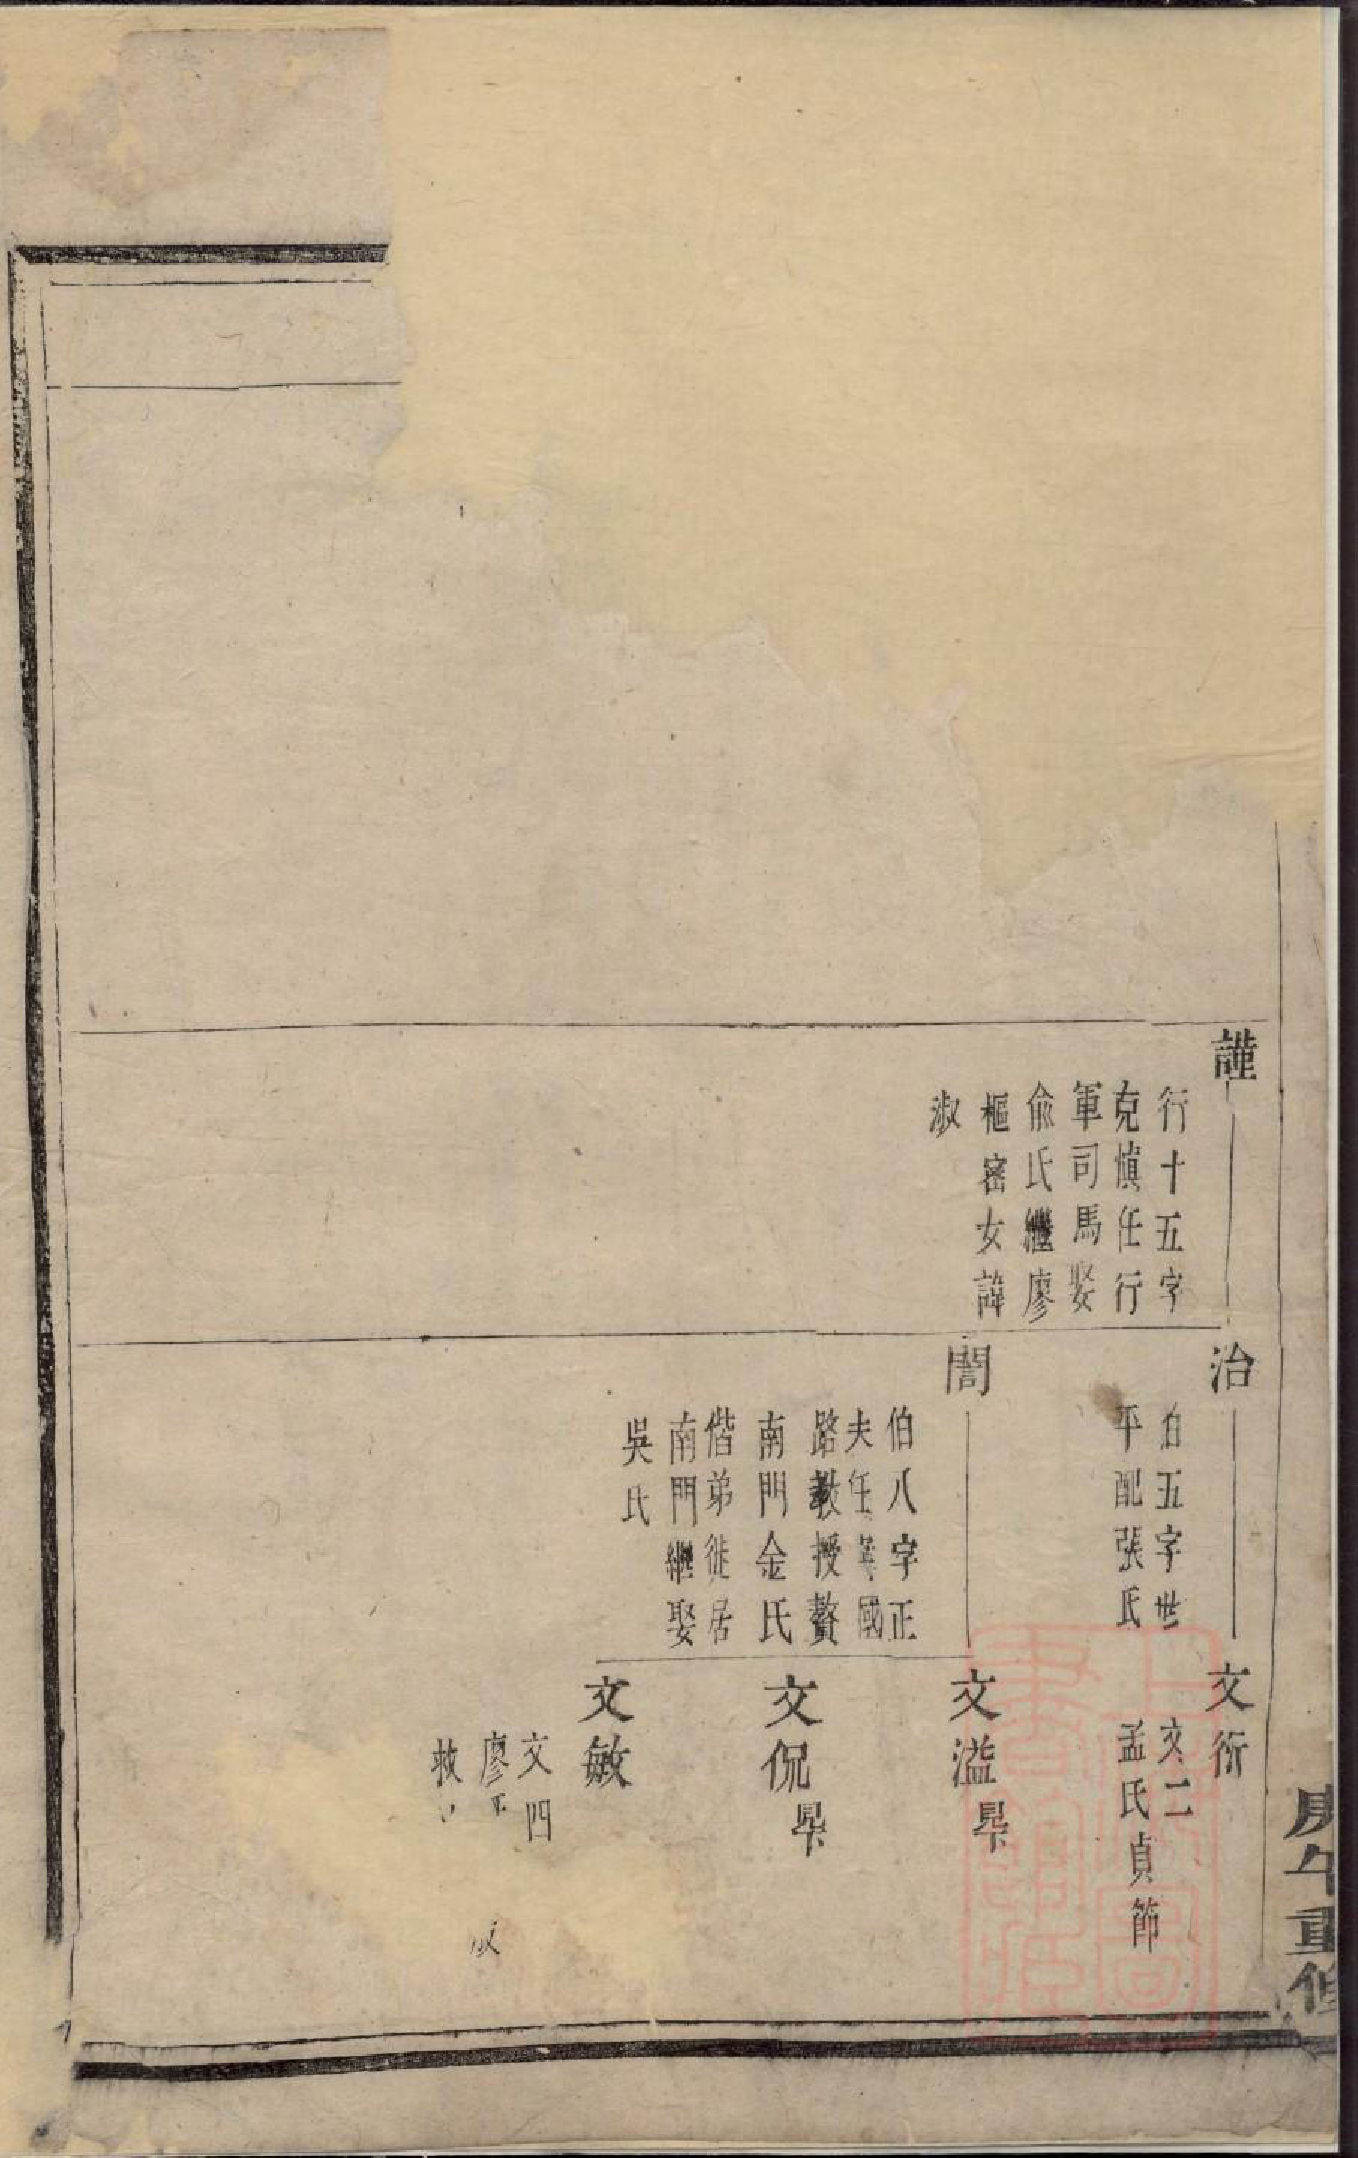 謹
行十五字
克慎任行
軍司馬娶
俞氏繼廖
樞密女諱
淑
治
伯五字世
平配張氏
誾
伯八字正
夫任寧國
路教授贅
南門金氏
偕弟徙居
南門繼娶
吳氏
文衍
文二
孟氏貞節
文溢
文侃
文敏
文四
廖
庚午重修